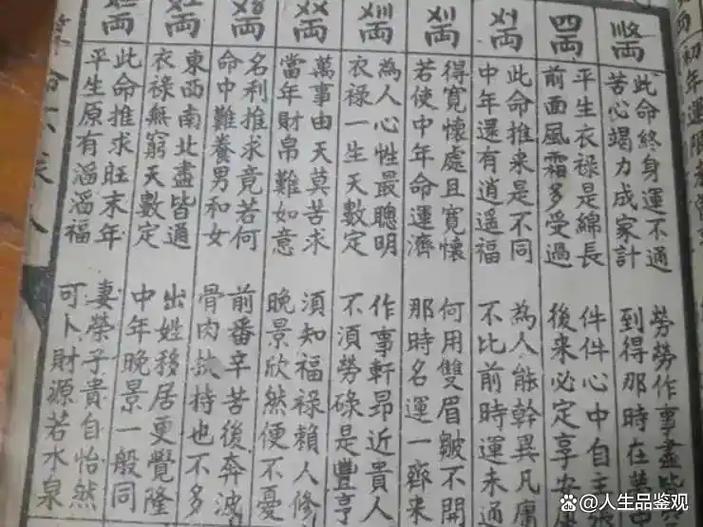 初年運限
両
此命終身運不通 勞勞作事盡皆
苦心竭力成家計 到得那時在
四両
平生衣禄是綿長 件件心中自主
前面風霜多受過 後來必定享安
〤〡両
此命推来是不同 為人能幹異凡庸
中年還有道遥福 不比前時運未通
〤〢両
得寬懷處且寬懷 何用雙眉皺不開
若使中年命運濟 那時名運一齊来
〤〣両
為人心性最聰明 作事軒昂近貴人
衣禄一生天數定 不須勞碌是豐亨
〤〤両
萬事由天莫苦求 須知福禄賴人修
當年財帛難如意 晚景欣然便不憂
両
名利推求竟若何 前番辛苦後奔波
命中難養男和女 骨肉扶持也不多
両
東西南北盡皆通 出姓移居更覺隆
衣禄無窮天數定 中年晚景一般同
両
此命推求旺末年 妻榮子貴自怡然
平生原有滔滔福 可卜財源若水泉
命不求人
@人生品鉴观